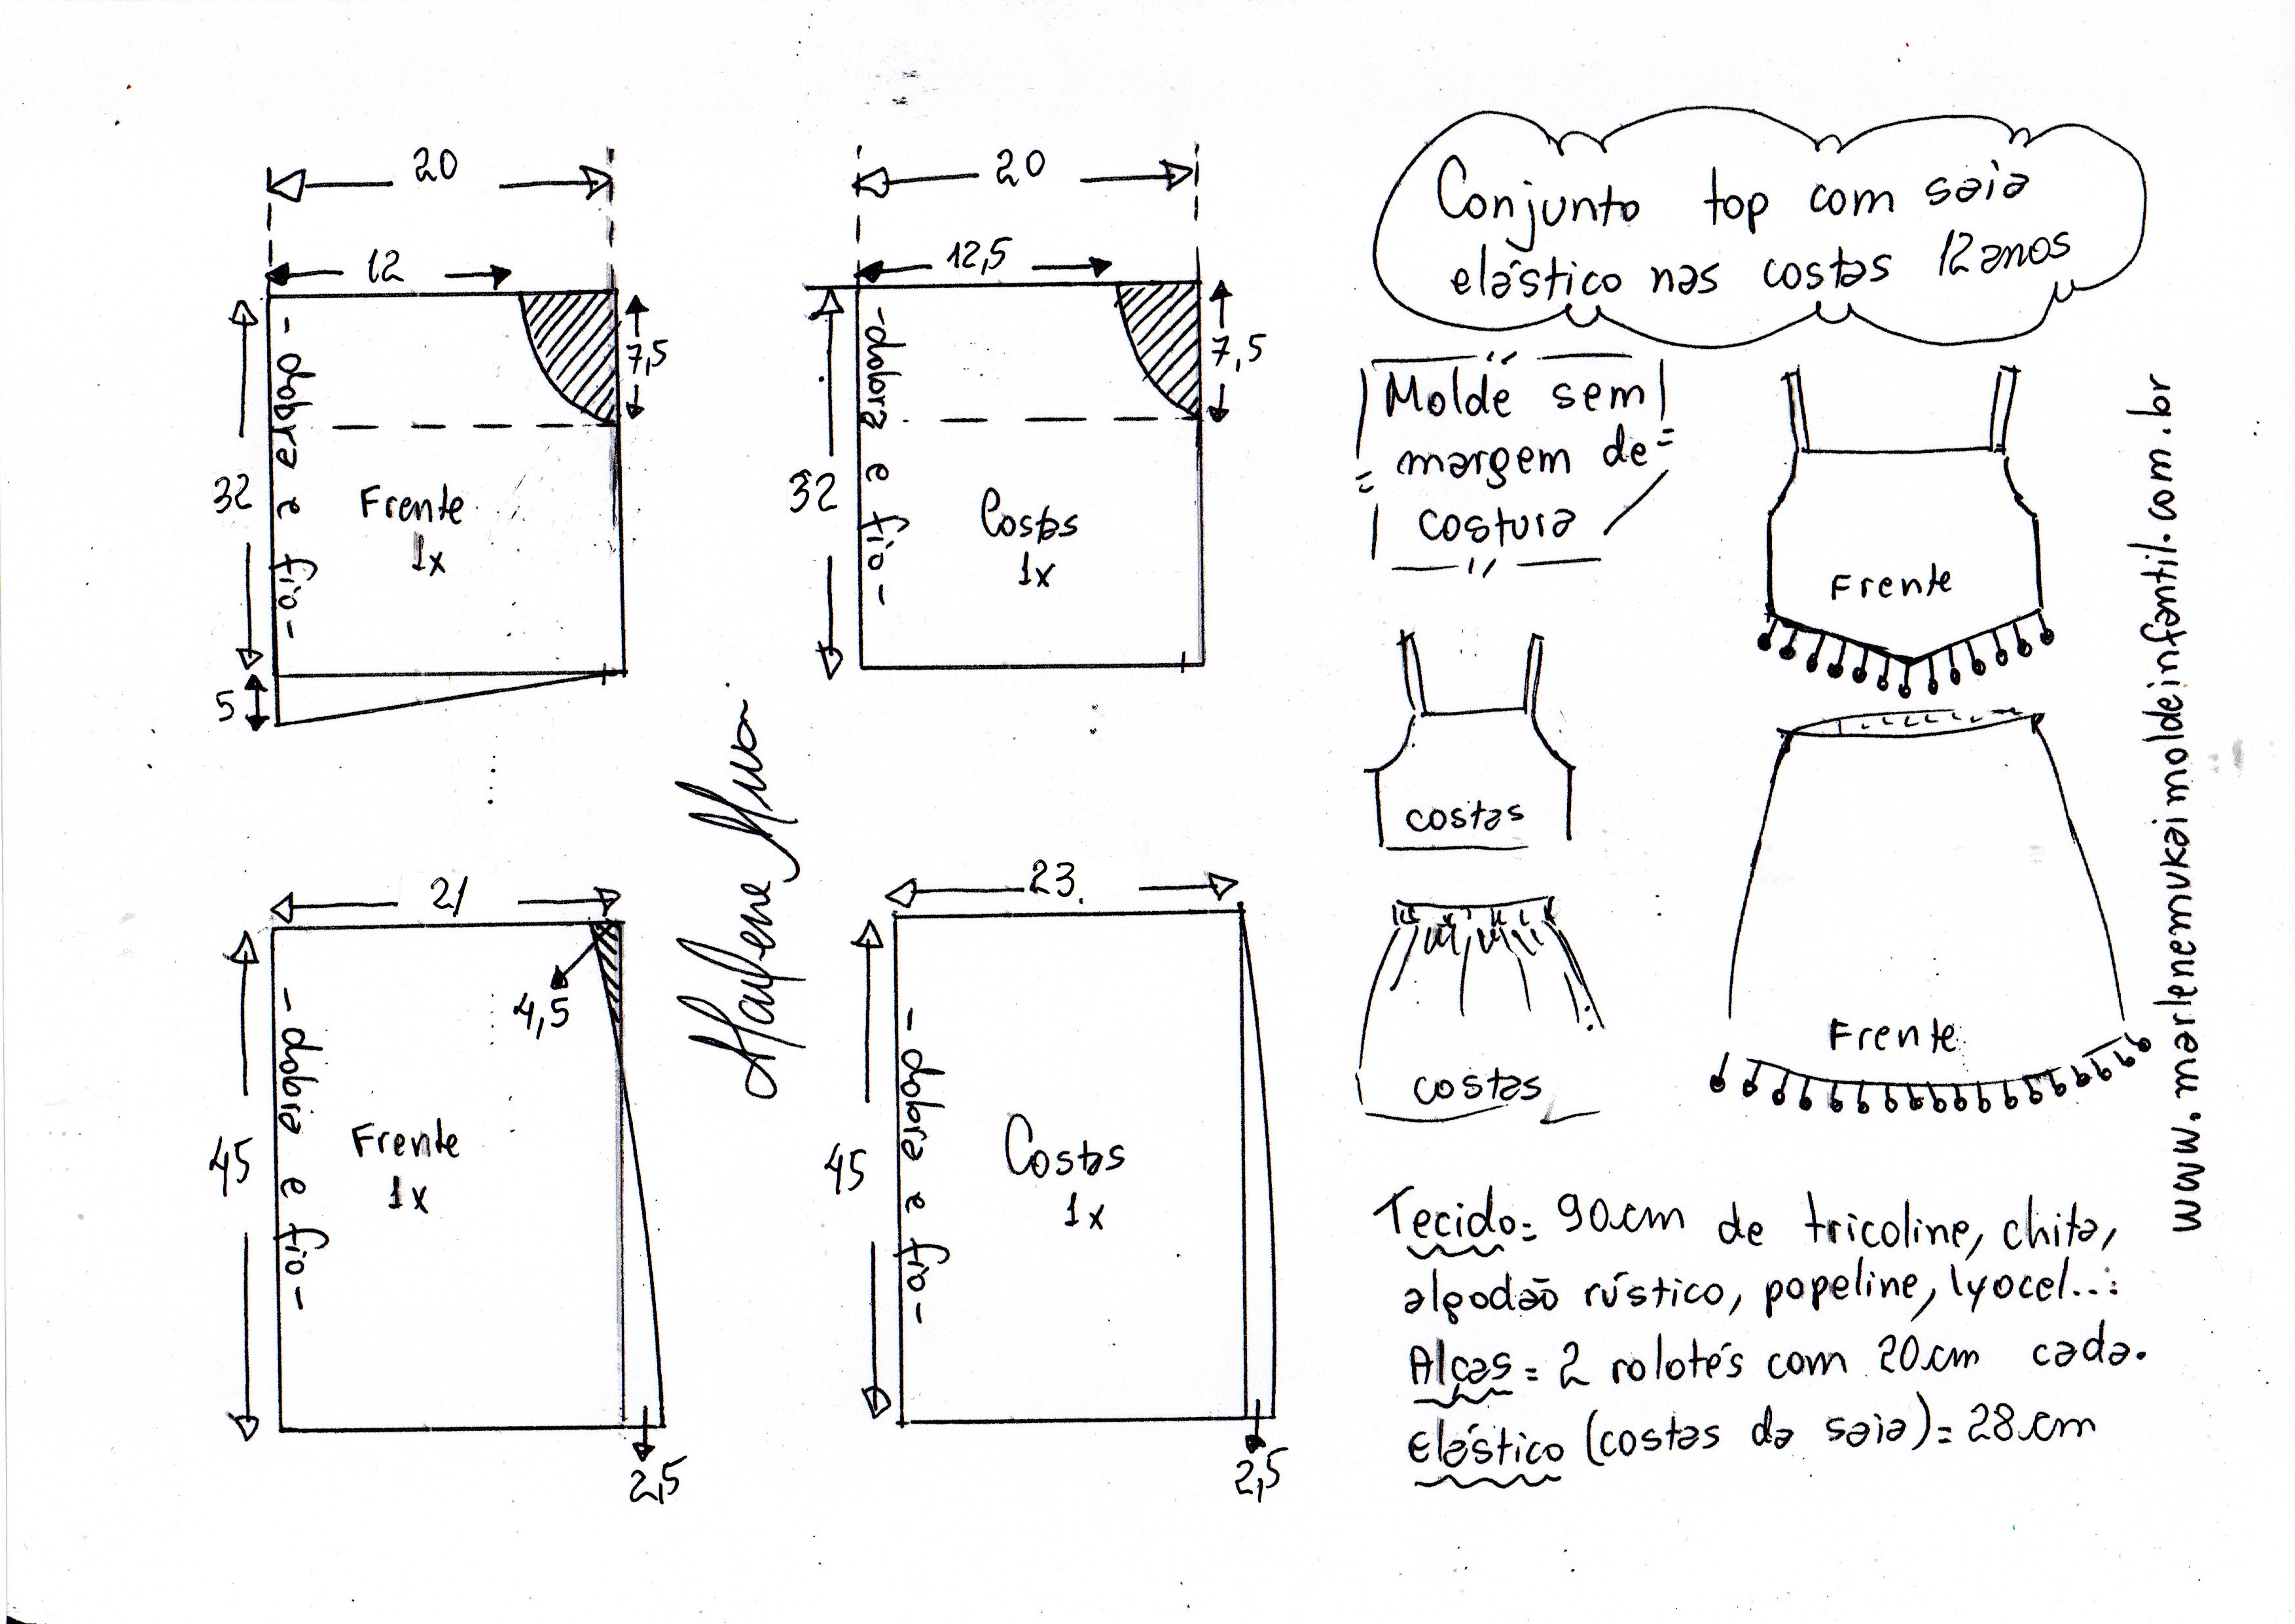 20
12
32
7,5
- dobra e fio -
Frente
1x
5
20
12,5
32
7,5
- dobra e fio -
Costas
1x
Conjunto top com saia
elástico nas costas 12 anos
Molde sem
margem de
costura
Frente
costas
costas
Frente
www.marlenemukaimoldeinfantil.com.br
21
4,5
45
- dobra e fio -
Frente
1x
2,5
Marlene Mukai
23.
45
- dobra e fio -
Costas
1x
2,5
Tecido = 90cm de tricoline, chita,
algodão rústico, popeline, lyocel...
Alças = 2 rolotés com 20cm cada.
Elástico (costas da saia) = 28cm